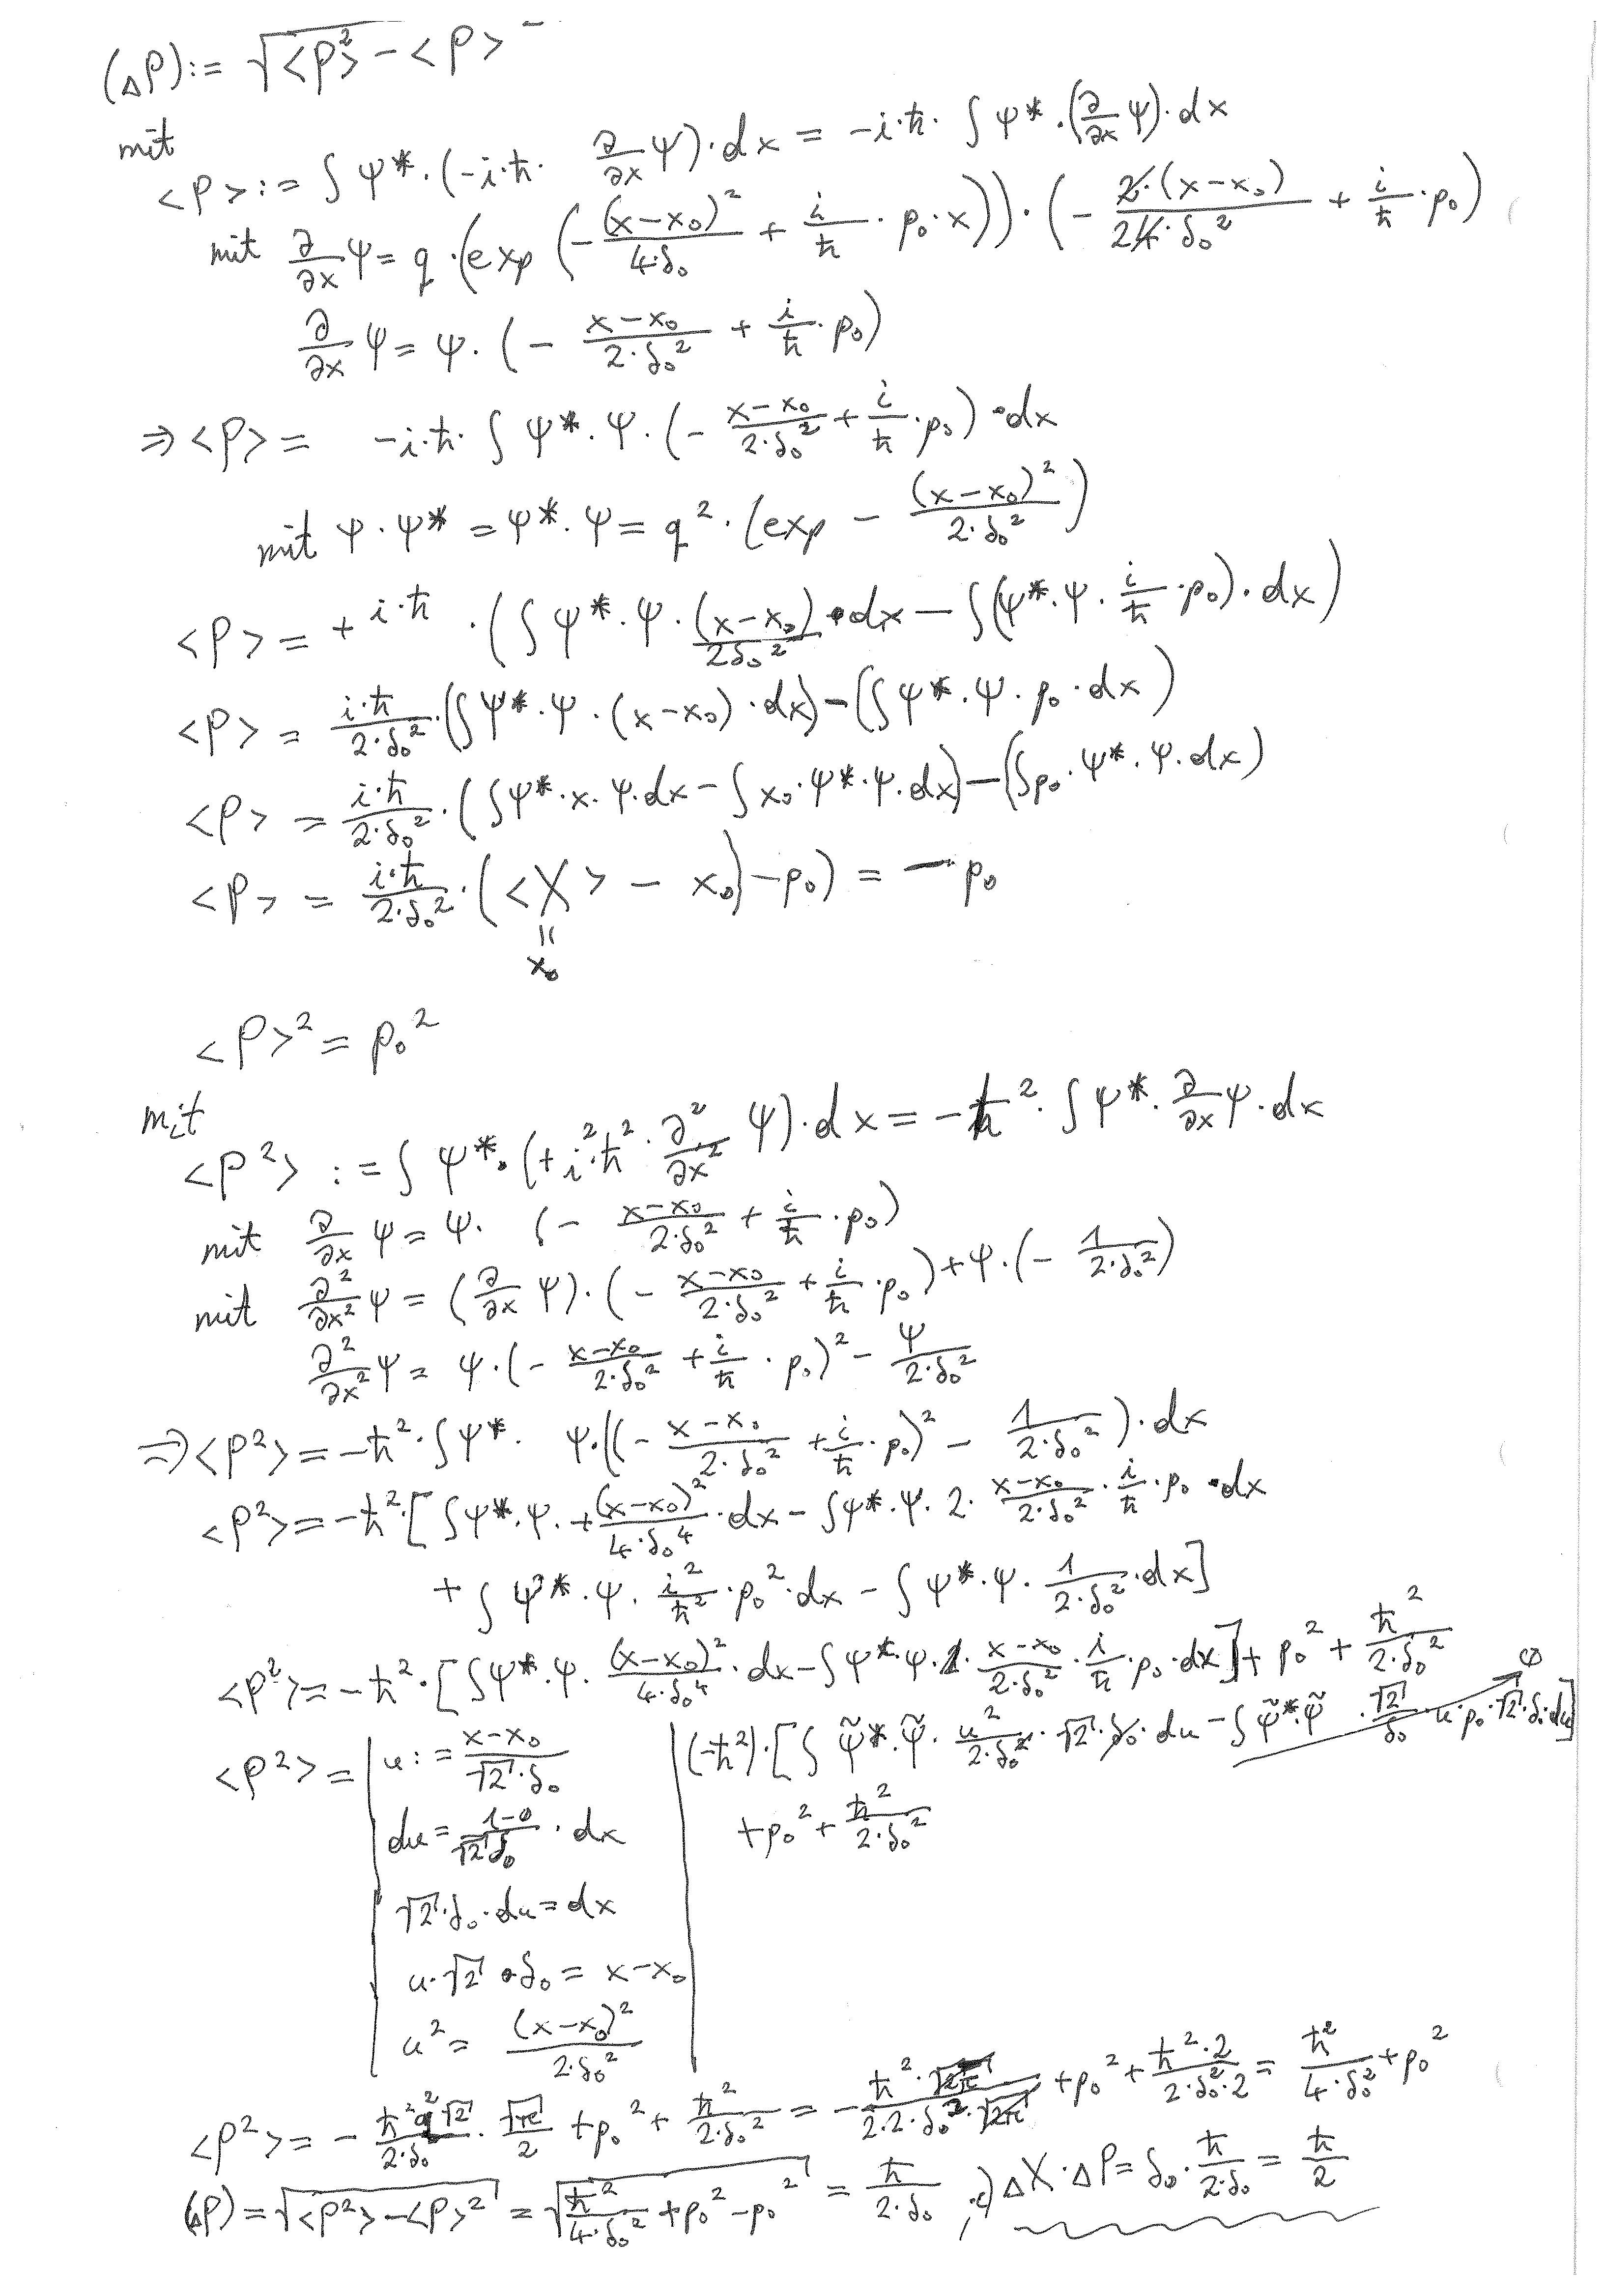 (ΔP) := √(<P²> - <P>²)
mit
<P> := ∫ ψ* · (-i·ħ · ∂/∂x ψ) · dx = -i·ħ · ∫ ψ* · (∂/∂x ψ) · dx
mit ∂/∂x ψ = q · (exp (-(x-x₀)²/(4·δ₀) + i/ħ · p₀ · x)) · (- 2·(x-x₀)/(24·δ₀²) + i/ħ · p₀)
∂/∂x ψ = ψ · (- (x-x₀)/(2·δ₀²) + i/ħ · p₀)
⇒ <P> = -i·ħ · ∫ ψ* · ψ · (- (x-x₀)/(2·δ₀²) + i/ħ · p₀) · dx
mit ψ · ψ* = ψ* · ψ = q² · (exp - (x-x₀)²/(2·δ₀²))
<P> = + i·ħ · (∫ ψ* · ψ · (x-x₀)/(2δ₀²) · dx - ∫(ψ* · ψ · i/ħ · p₀) · dx)
<P> = i·ħ/(2·δ₀²) · (∫ ψ* · ψ · (x-x₀) · dx) - (∫ ψ* · ψ · p₀ · dx)
<P> = i·ħ/(2·δ₀²) · (∫ ψ* · x · ψ · dx - ∫ x₀ · ψ* · ψ · dx) - (∫ p₀ · ψ* · ψ · dx)
<P> = i·ħ/(2·δ₀²) · (<X> - x₀) - p₀) = - p₀
=
x₀
<P>² = p₀²
mit
<P²> := ∫ ψ* · (+i²·ħ² · ∂²/∂x² ψ) · dx = -ħ² · ∫ ψ* · ∂/∂x ψ · dx
mit ∂/∂x ψ = ψ · (- (x-x₀)/(2·δ₀²) + i/ħ · p₀)
mit ∂²/∂x² ψ = (∂/∂x ψ) · (- (x-x₀)/(2·δ₀²) + i/ħ · p₀) + ψ · (- 1/(2·δ₀²))
∂²/∂x² ψ = ψ · (- (x-x₀)/(2·δ₀²) + i/ħ · p₀)² - ψ/(2·δ₀²)
⇒ <P²> = -ħ² · ∫ ψ* · ψ · ((- (x-x₀)/(2·δ₀²) + i/ħ · p₀)² - 1/(2·δ₀²)) · dx
<P²> = -ħ² · [∫ ψ* · ψ · +(x-x₀)²/(4·δ₀⁴) · dx - ∫ ψ* · ψ · 2 · (x-x₀)/(2·δ₀²) · i/ħ · p₀ · dx
+ ∫ ψ* · ψ · i²/ħ² · p₀² · dx - ∫ ψ* · ψ · 1/(2·δ₀²) · dx]
<P²> = -ħ² · [∫ ψ* · ψ · (x-x₀)²/(4·δ₀⁴) · dx - ∫ ψ* · ψ · 2 · (x-x₀)/(2·δ₀²) · i/ħ · p₀ · dx] + p₀² + ħ²/(2·δ₀²)
<P²> = | u := (x-x₀)/(√2·δ₀) | (-ħ²) · [∫ ψ̃* · ψ̃ · u²/(2·δ₀²) · √2 · δ₀ · du - ∫ ψ̃* · ψ̃ · √2/δ₀ · u · p₀ · √2 · δ₀ · du] 0
du = (1-0)/(√2 δ₀) · dx
+ p₀² + ħ²/(2·δ₀²)
√2 · δ₀ · du = dx
u · √2 · δ₀ = x-x₀
u² = (x-x₀)²/(2·δ₀²)
<P²> = - ħ² q² √2/(2·δ₀) · √π/2 + p₀² + ħ²/(2·δ₀²) = - ħ² · √2π/(2·2·δ₀² · √2π) + p₀² + ħ²·2/(2·δ₀²·2) = ħ²/(4·δ₀²) + p₀²
(ΔP) = √(<P²> - <P>²) = √(ħ²/(4·δ₀²) + p₀² - p₀²) = ħ/(2·δ₀) , c) ΔX · ΔP = δ₀ · ħ/(2·δ₀) = ħ/2